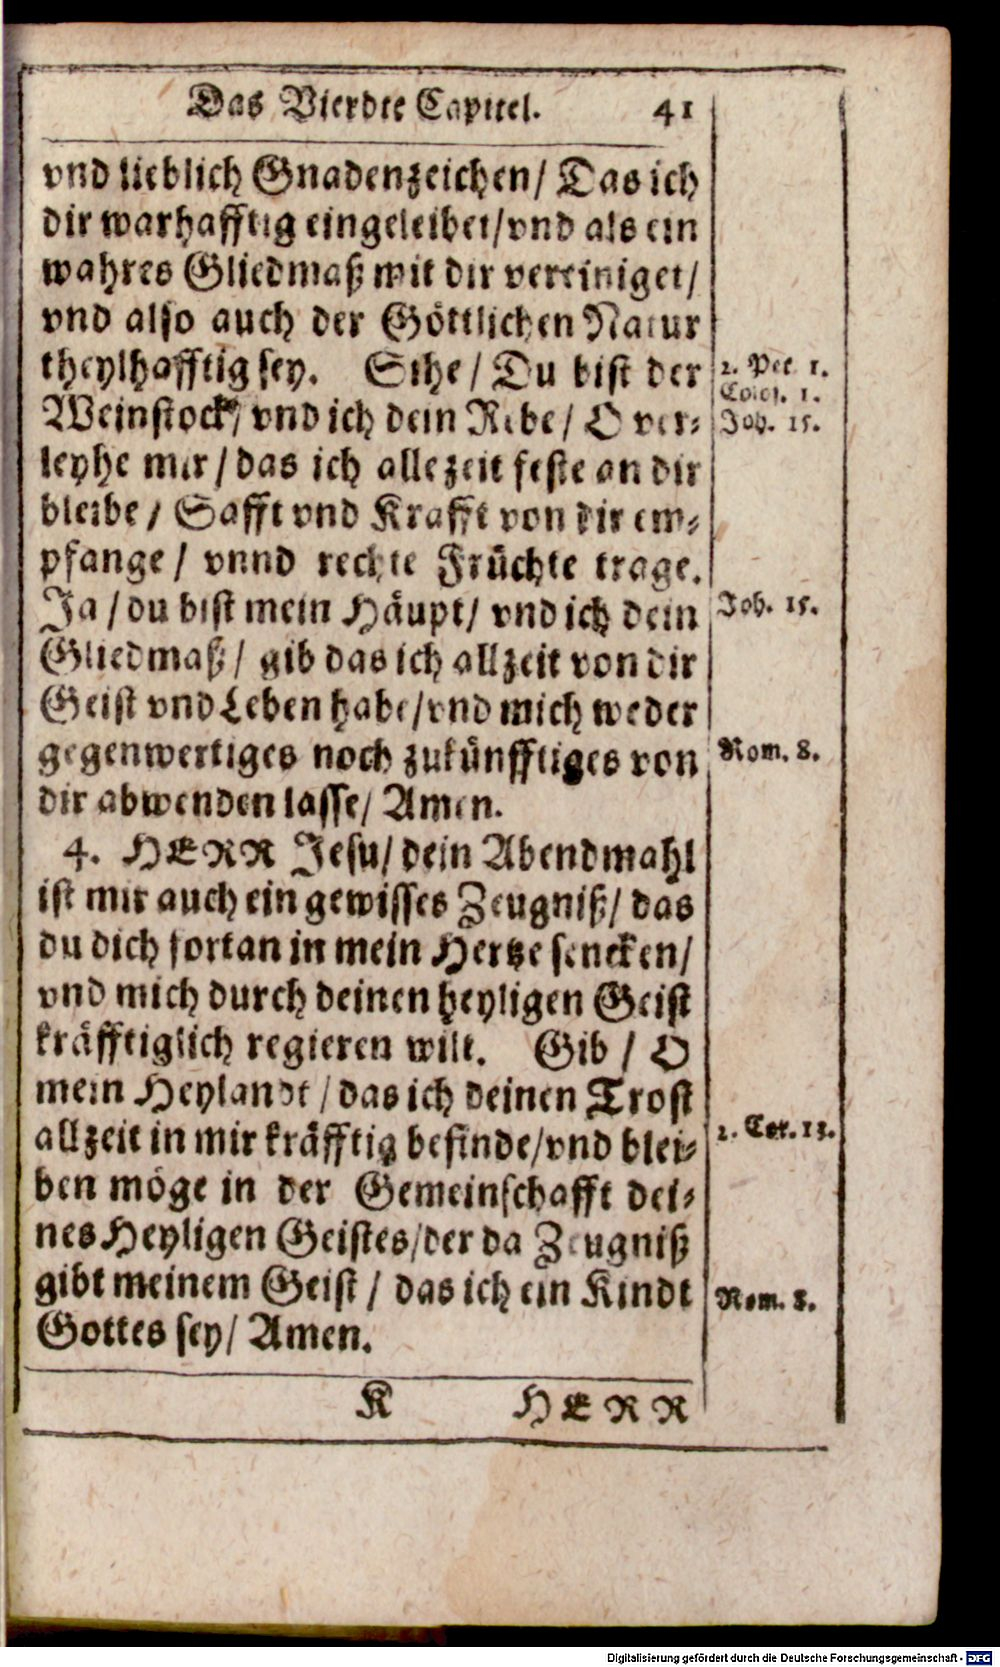 Das Vierdte Capittel. 41
vnd lieblich Gnadenzeichen/ Das ich
dir warhafftig eingeleibet/vnd als ein
wahres Gliedmaß mit dir vereiniget/
vnd also auch der Göttlichen Natur
theylhafftig sey. Sihe / Du bist der
2. Pet. 1.
Colos. 1.
Weinstock/ vnd ich dein Rebe/ O ver-
Joh. 15.
leyhe mir / das ich allezeit feste an dir
bleibe / Safft vnd Krafft von dir em-
pfange / vnnd rechte Früchte trage.
Ja / du bist mein Häupt/ vnd ich dein
Joh. 15.
Gliedmaß/ gib das ich allzeit von dir
Geist vnd Leben habe/vnd mich weder
gegenwertiges noch zukünfftiges von
Rom. 8.
dir abwenden lasse/ Amen.
4. HERR Jesu/ dein Abendmahl
ist mir auch ein gewisses Zeugniß/ das
du dich fortan in mein Hertze sencken/
vnd mich durch deinen heyligen Geist
kräfftiglich regieren wilt. Gib / O
mein Heylandt / das ich deinen Trost
allzeit in mir kräfftig befinde/vnd blei-
2. Cor. 13.
ben möge in der Gemeinschafft dei-
nes Heyligen Geistes/der da Zeugniß
gibt meinem Geist / das ich ein Kindt
Rom. 8.
Gottes sey/ Amen.
K HERR
Digitalisierung gefördert durch die Deutsche Forschungsgemeinschaft - DFG